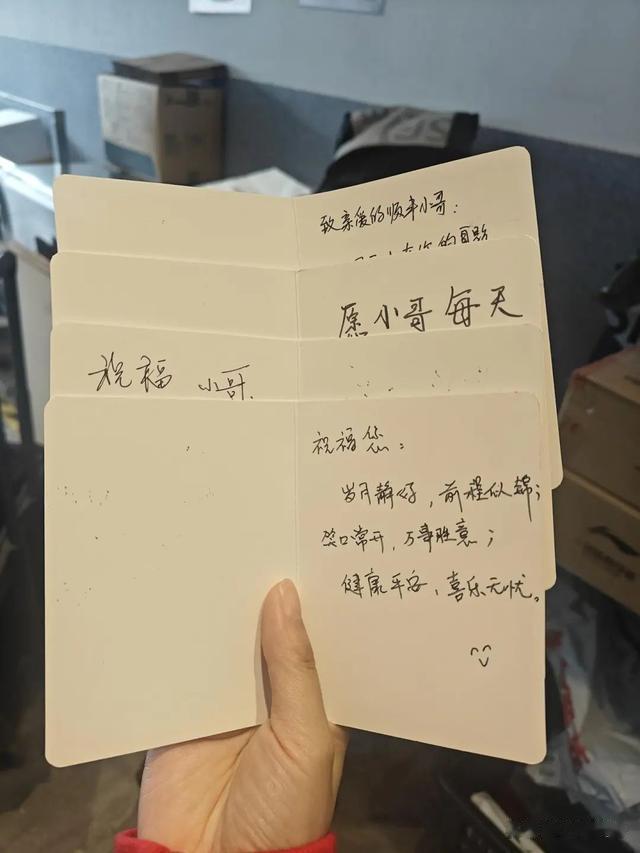 致亲爱的顺丰小哥：
愿小哥每天
祝福 小哥.
祝福您：
岁月静好，前程似锦；
笑口常开，万事胜意；
健康平安，喜乐无忧。